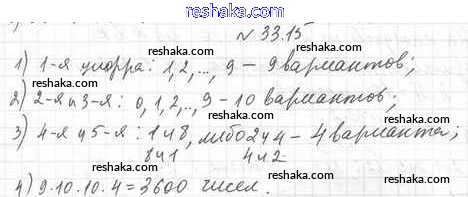 reshaka.com
reshaka.com
№ 33.15
reshaka.com
1) 1-я цифра: 1,2,..., 9 - 9 вариантов;
reshaka.com reshaka.com
2) 2-я и 3-я: 0,1,2,..., 9 - 10 вариантов;
reshaka.com reshaka.com
3) 4-я и 5-я: 1 и 8, либо 2 и 4 - 4 варианта;
reshaka.com reshaka.com
8 и 1 4 и 2
reshaka.com
4) 9·10·10·4=3600 чисел.
reshaka.com reshaka.com